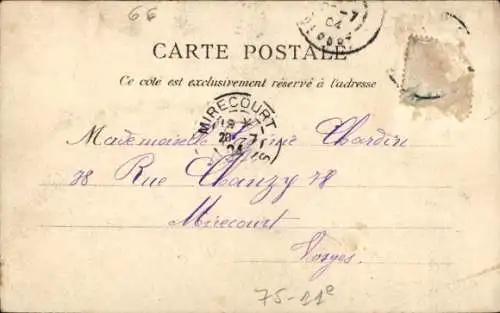 66
7
04
CARTE POSTALE
Ce côté est exclusivement réservé à l'adresse
MIRECOURT
28 7
04
Mademoiselle Chardin
78 Rue Chanzy 78
Mirecourt
Vosges
75-11e